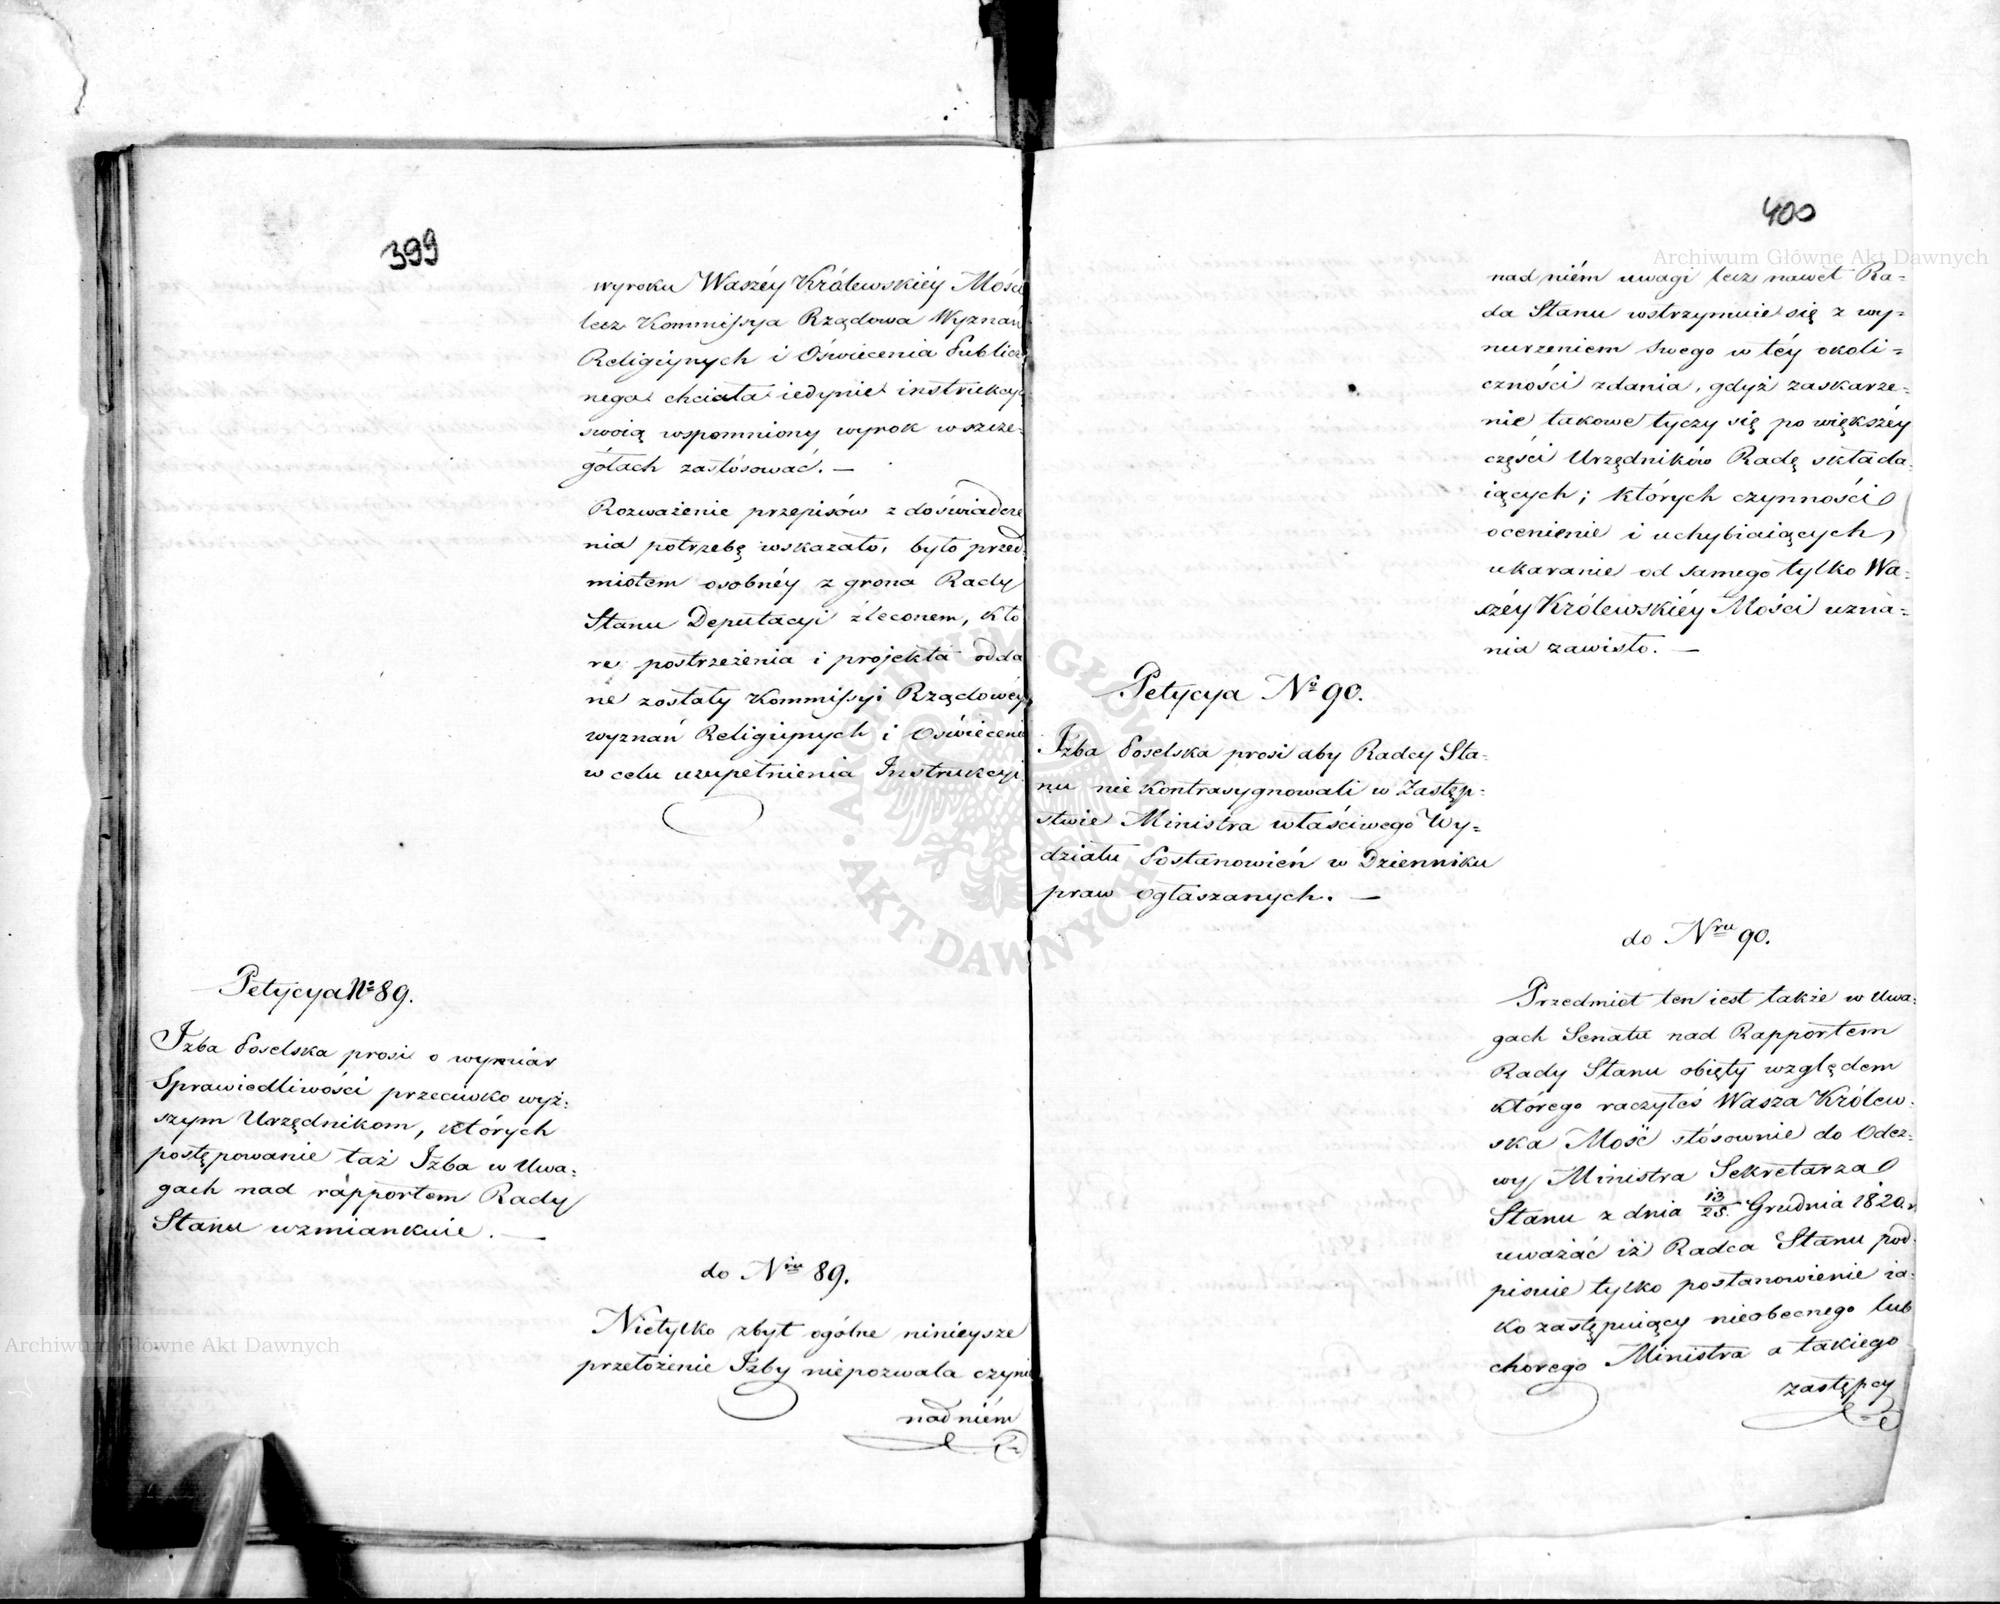 399
wyroku Waszéy Królewskiéy Mości
lecz Kommissya Rządowa Wyznań
Religiynych i Oświecenia Publicz
nego chciała iedynie instrukcyą
swoią wspomniony wyrok w szcze-
gółach zastósować. —
Rozważenie przepisów z doświadcze
nia potrzebę wskazało, było przed
miotem osobnéy z grona Rady
Stanu Deputacyi zleconem, któ
re postrzeżenia i projekta odda
ne zostały Kommissyi Rządowéy
wyznań Religiynych i Oświecenia
w celu uzupełnienia Instrukcyi
Petycya Nº 89.
Izba Poselska prosi o wymiar
Sprawiedliwości przeciwko wyż-
szym Urzędnikom, których
postępowanie taż Izba w Uwa-
gach nad rapportem Rady
Stanu wzmiankuie. —
do Nru 89.
Nietylko zbyt ogólne ninieysze
przełożenie Izby niepozwala czynić
nad niém
400
nad niém uwagi lecz nawet Ra-
da Stanu wstrzymuie się z wy-
nurzeniem swego w téy okoli-
czności zdania, gdyż zaskarże-
nie takowe tyczy się po większéy
części Urzędników Radę składa-
iących; których czynności
ocenienie i uchybiaiących,
ukaranie od samego tylko Wa-
széy Królewskiéy Mości uzna-
nia zawisło. —
Petycya Nº 90.
Izba Poselska prosi aby Radcy Sta-
nu nie kontrasygnowali w Zastęp-
stwie Ministra właściwego Wy-
działu Postanowień w Dzienniku
praw ogłaszanych. —
do Nru 90.
Przedmiot ten iest także w Uwa-
gach Senatu nad Rapportem
Rady Stanu obięty względem
którego raczyłeś Wasza Królew-
ska Mość stósownie do Odez-
wy Ministra Sekretarza
Stanu z dnia 13/25 Grudnia 1820 r
uważać iż Radca Stanu pod-
pisuie tylko postanowienie ia-
ko zastępuiący nieobecnego lub
chorego Ministra a takiego
zastępcy
Archiwum Główne Akt Dawnych
Archiwum Główne Akt Dawnych
ARCHIWUM GŁÓWNE • AKT DAWNYCH •